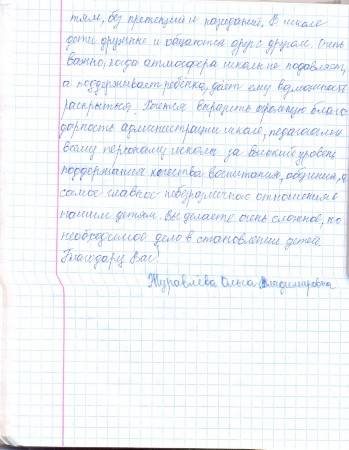 тям, без претензий и назиданий. В школе
дети дружные и общаются друг с другом. Очень
важно, когда атмосфера школы не подавляет,
а поддерживает ребёнка, даёт ему возможность
раскрыться. Хочется выразить огромную благо-
дарность администрации школе, педагогам и
всему персоналу школы за высокий уровень
поддержание качества воспитания, обучения, а
самое главное небезразличного отношения к
нашим детям. Вы делаете очень сложное, но
необходимое дело в становлении детей
Благодарю Вас!
Журавлёва Ольга Владимировна